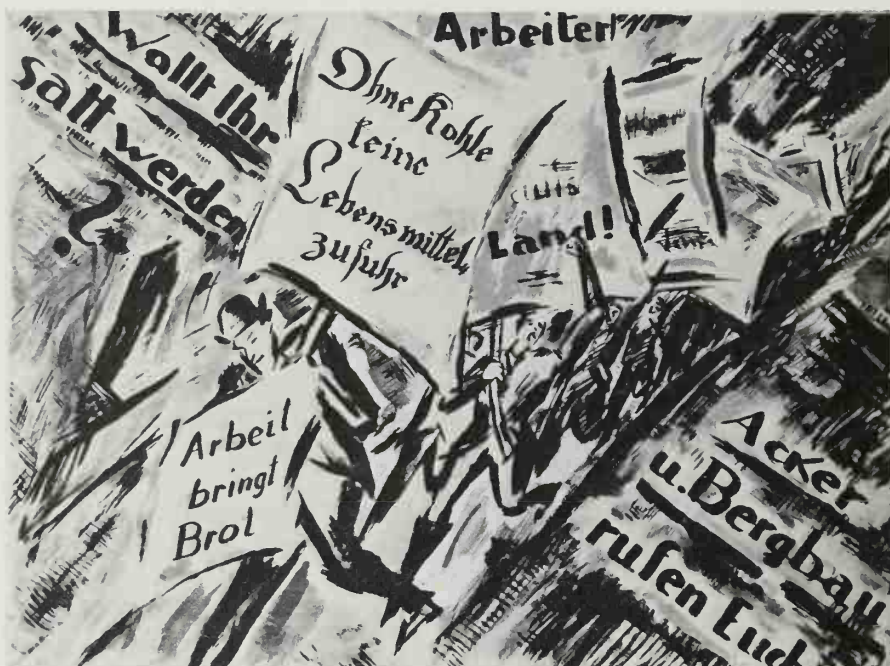 Arbeiter!
Wollt Ihr
satt werden
?
Ohne Kohle
keine
Lebensmittel,
zufuhr
aufs
Land!
Arbeit
bringt
Brot
Acker
u. Bergbau
rufen Euch